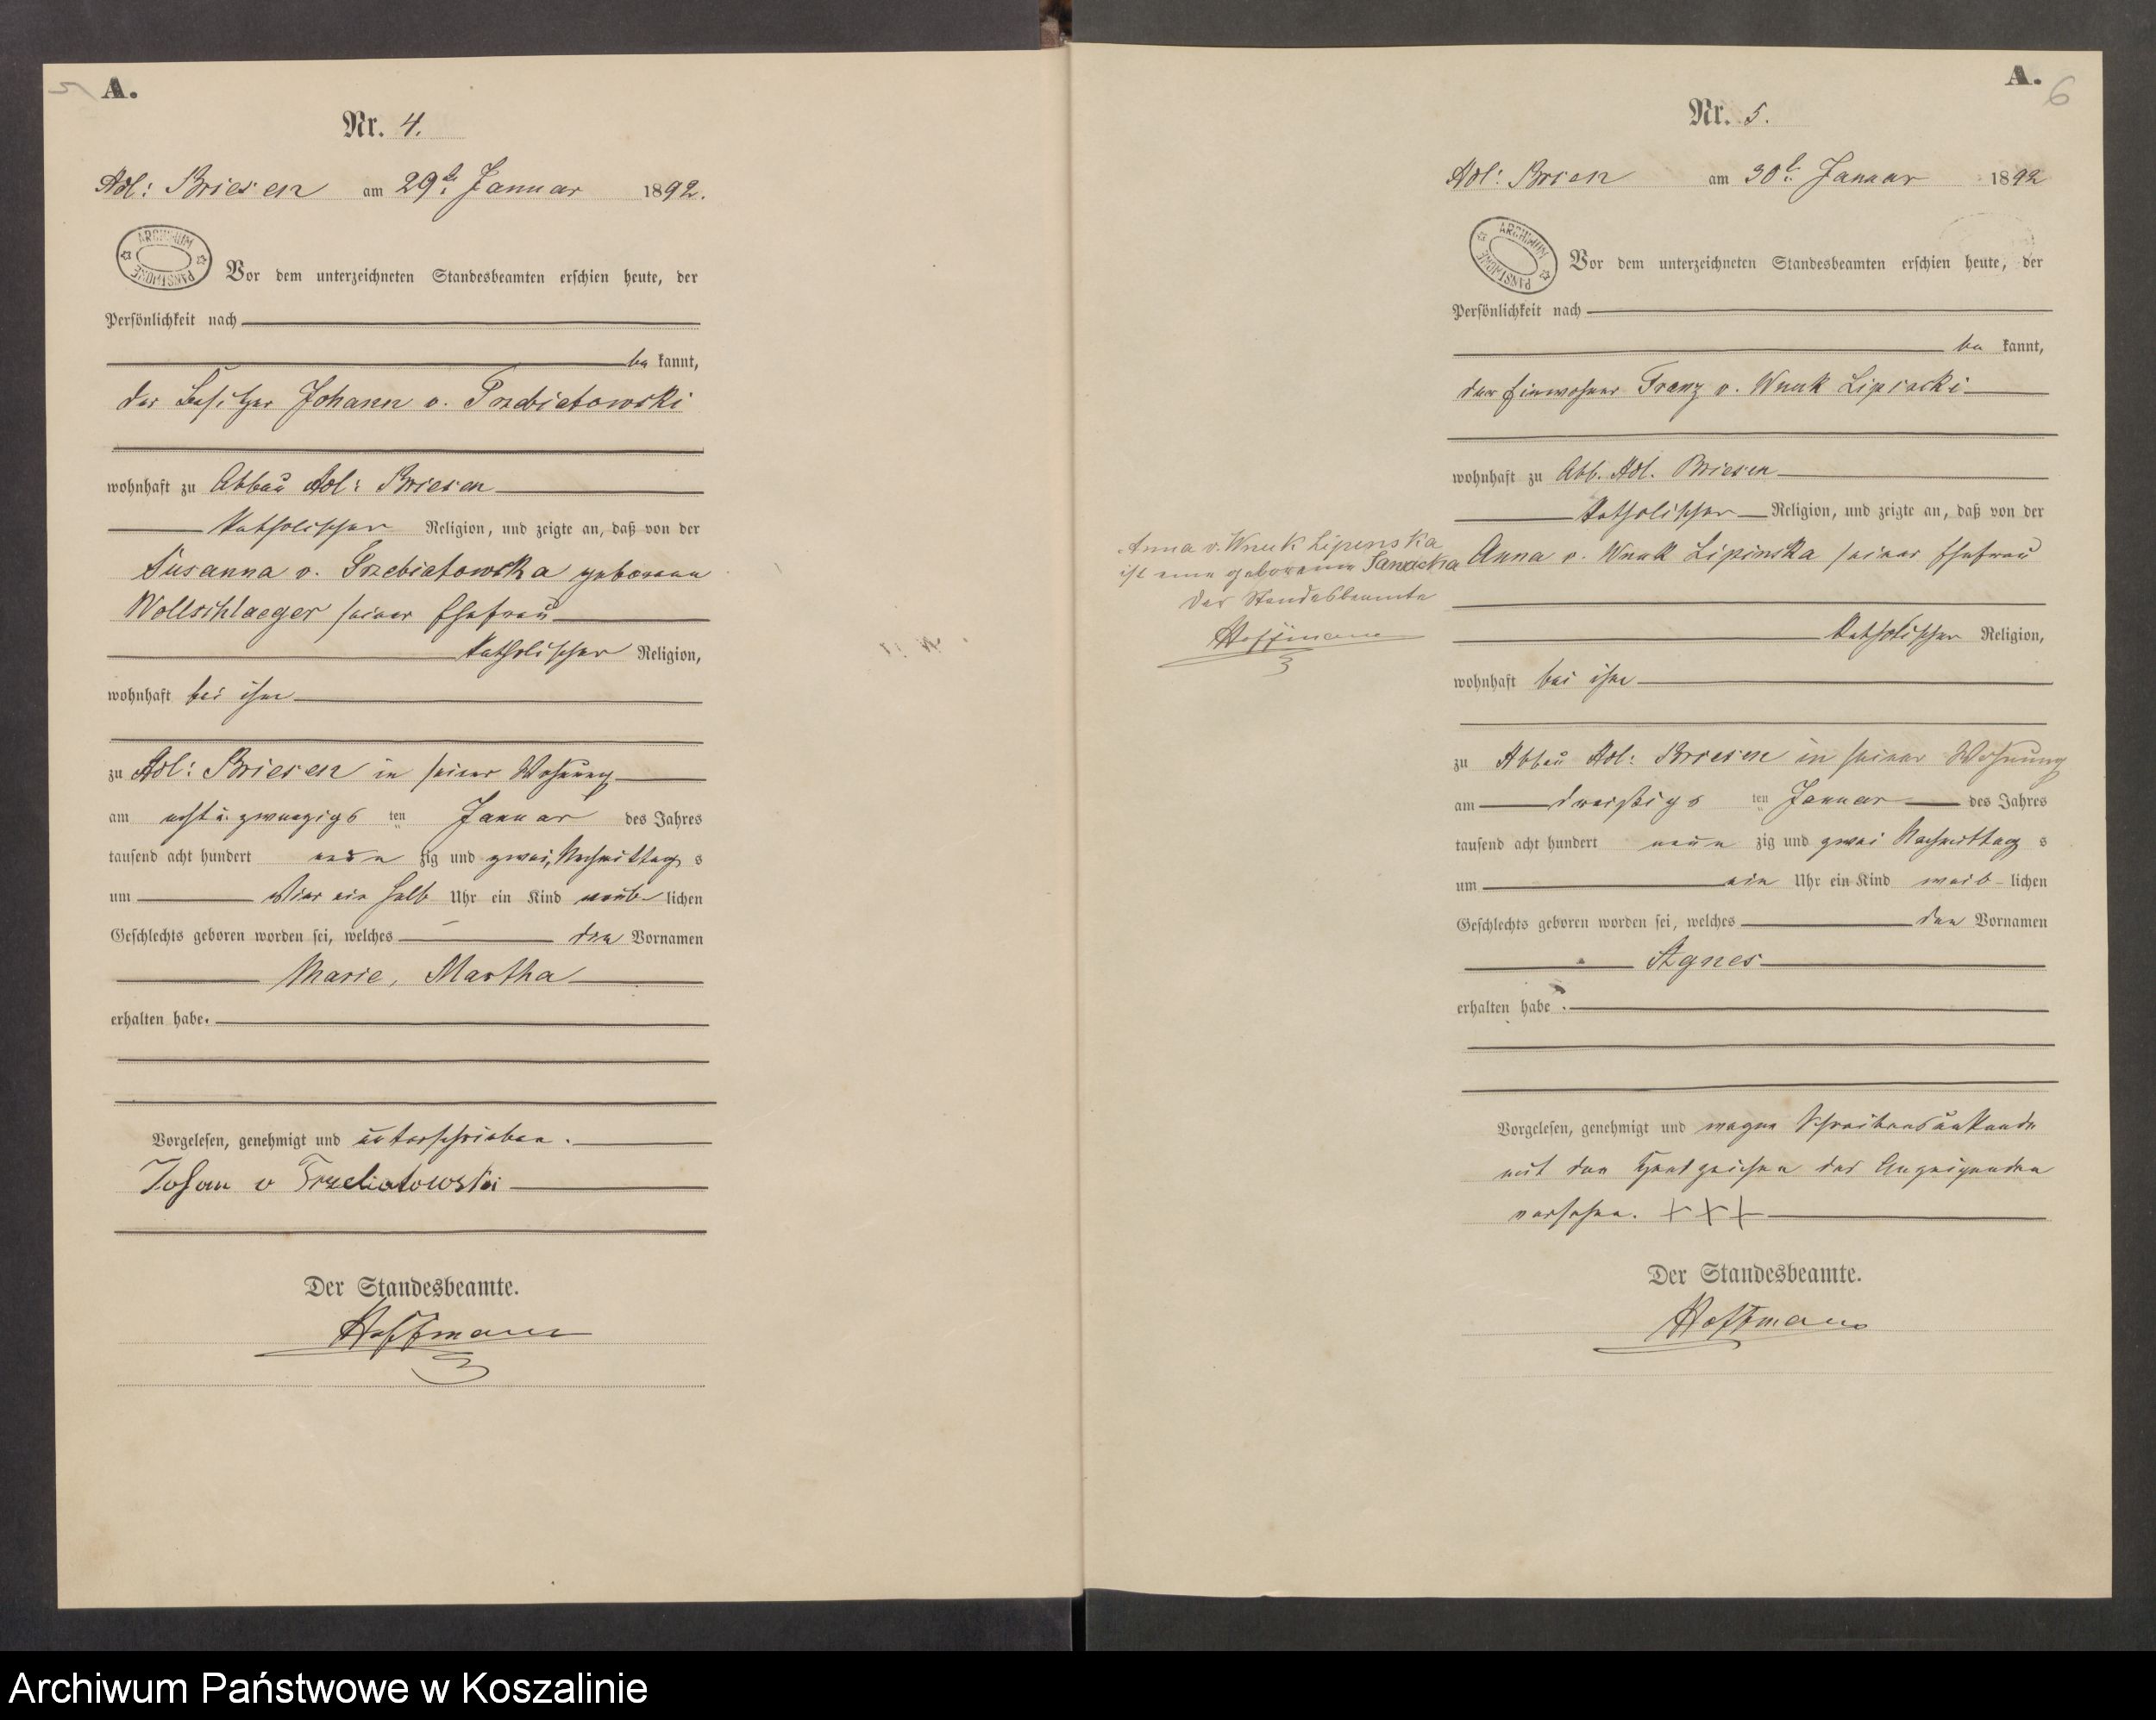 5
A.
Nr. 4.
Adl: Briesen am 29t. Januar 1892.
ARCHIWUM PAŃSTWOWE
Vor dem unterzeichneten Standesbeamten erschien heute, der
Persönlichkeit nach
be kannt,
der Besitzer Johann v. Trzebiatowski
wohnhaft zu Abbau Adl: Briesen
katholischer Religion, und zeigte an, daß von der
Susanna v. Trzebiatowska geborene
Wollschlaeger seiner Ehefrau
katholischer Religion,
wohnhaft bei ihm
zu Adl: Briesen in seiner Wohnung
am acht u. zwanzigs ten Januar des Jahres
tausend acht hundert neun zig und zwei, Nachmittag s
um vier ein halb Uhr ein Kind weib lichen
Geschlechts geboren worden sei, welches den Vornamen
Marie, Martha
erhalten habe.
Vorgelesen, genehmigt und unterschrieben.
Johan v Trzebiatowski
Der Standesbeamte.
Hoffmann
A.
6
Nr. 5.
Adl: Brisen am 30t. Januar 1892
ARCHIWUM PAŃSTWOWE
Vor dem unterzeichneten Standesbeamten erschien heute, der
Persönlichkeit nach
be kannt,
der Einwohner Franz v. Wnuk Lipinski
wohnhaft zu Abb. Adl. Briesen
katholischer Religion, und zeigte an, daß von der
Anna v. Wnuk Lipinska seiner Ehefrau
katholischer Religion,
wohnhaft bei ihm
zu Abbau Adl: Briesen in seiner Wohnung
am dreißigs ten Januar des Jahres
tausend acht hundert neun zig und zwei Nachmittag s
um ein Uhr ein Kind weib lichen
Geschlechts geboren worden sei, welches den Vornamen
Agnes
erhalten habe.
Vorgelesen, genehmigt und wegen Schreibensunkunde
mit den Handzeichen des Anzeigenden
versehen. +++
Der Standesbeamte.
Hoffmann
Anna v. Wnuk Lipenska
ist eine geborene
Der Standesbeamte
Hoffmann
Archiwum Państwowe w Koszalinie